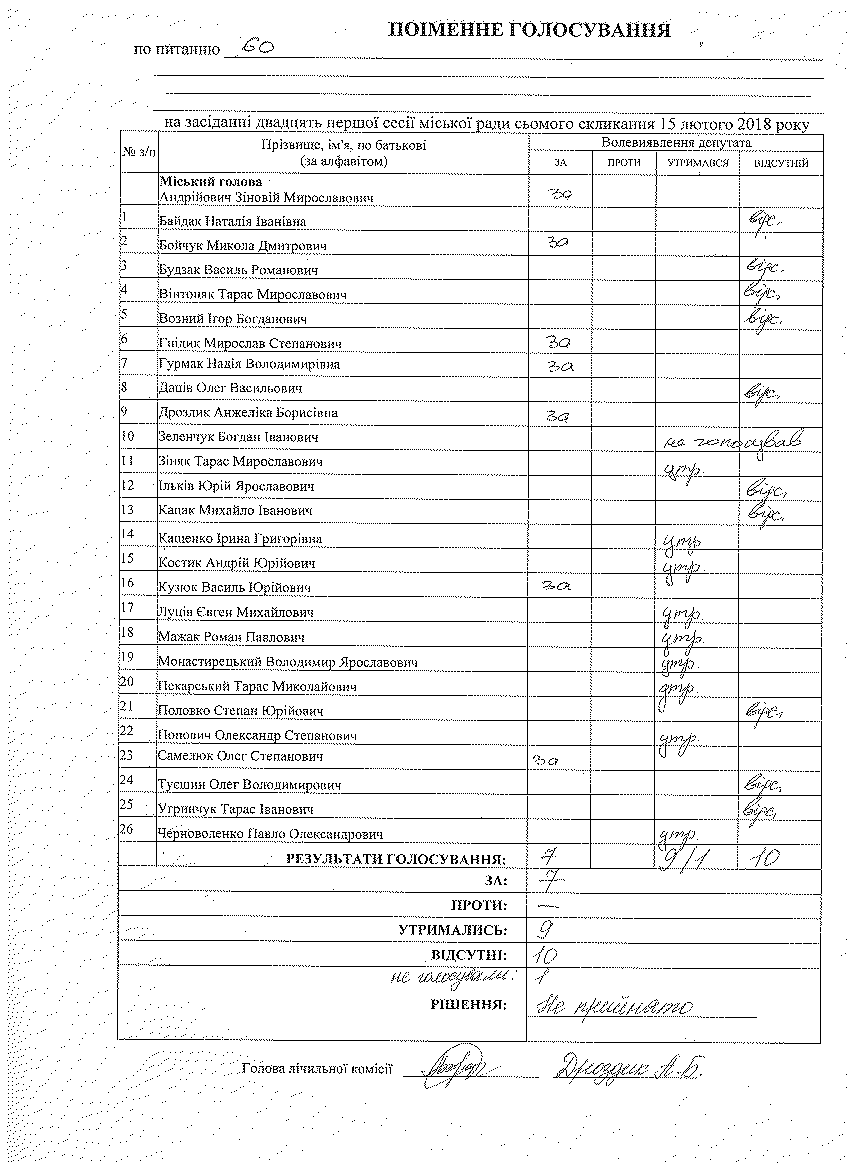 ПОІМЕННЕ ГОЛОСУВАННЯ
по питанню 60
на засіданні двадцять першої сесії міської ради сьомого скликання 15 лютого 2018 року
№ з/п Прізвище, ім'я, по батькові (за алфавітом) Волевиявлення депутата
ЗА ПРОТИ УТРИМАВСЯ ВІДСУТНІЙ
Міський голова
Андрійович Зіновій Мирославович за
1 Байдак Наталія Іванівна відс.
2 Бойчук Микола Дмитрович за
3 Будзак Василь Романович відс.
4 Вінтоняк Тарас Мирославович відс.
5 Возний Ігор Богданович відс.
6 Гнідик Мирослав Степанович за
7 Гурмак Надія Володимирівна за
8 Даців Олег Васильович відс.
9 Дроздик Анжеліка Борисівна за
10 Зеленчук Богдан Іванович не голосував
11 Зіняк Тарас Мирославович утр.
12 Ільків Юрій Ярославович відс.
13 Кацак Михайло Іванович відс.
14 Кащенко Ірина Григорівна утр
15 Костик Андрій Юрійович утр.
16 Кузюк Василь Юрійович за
17 Луців Євген Михайлович утр.
18 Мажак Роман Павлович утр.
19 Монастирецький Володимир Ярославович утр.
20 Пекарський Тарас Миколайович утр.
21 Половко Степан Юрійович відс.
22 Попович Олександр Степанович утр.
23 Самелюк Олег Степанович за
24 Туєшин Олег Володимирович відс.
25 Угринчук Тарас Іванович відс.
26 Черноволенко Павло Олександрович утр.
РЕЗУЛЬТАТИ ГОЛОСУВАННЯ: 7 9/1 10
ЗА: 7
ПРОТИ: —
УТРИМАЛИСЬ: 9
ВІДСУТНІ: 10
не голосували: 1
РІШЕННЯ: Не прийнято
Голова лічильної комісії Дроздик А.Б.